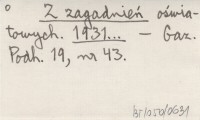 ° Z zagadnień oświa-
towych. 1931... — Gaz.
Podh. 19, nr 43.